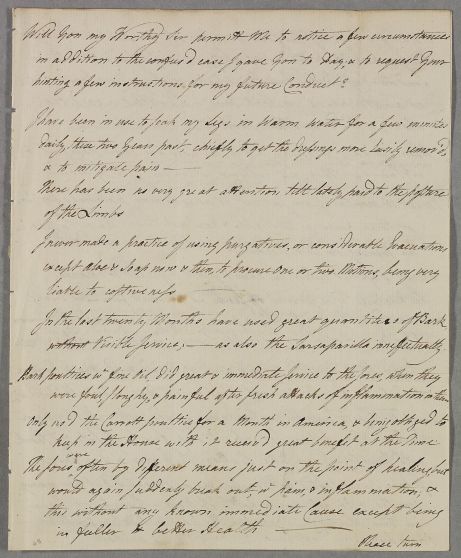 Will you my Worthy Sir permitt Me to notice a few circumstances
in addition to the confus'd case I gave you to Day, & to request Your
hinting a few instructions, for my future Conduct?
I have been in use to soak my Legs in Warm Water for a few minutes
daily, these two Years past, chiefly to get the dressings more easily remov'd,
& to mitigate pain —
There has been no very great attention till lately, paid to the posture
of the Limbs
I never made a practice of using purgatives, or considerable Evacuations
except Aloe & Soap now & then, to procure one or two Motions, being very
liable to costiveness
In the last twenty Months have used great quantities of Bark
without Visible Service, — as also the Sarsaparilla ineffectually
Bark poultices wt Oil, did great & immediate Service to the sores, when they
were foul, sloughy, & painful after fresh attacks of inflammation
Only us'd the Carrott poultice for a Month in America, & being obliged to
keep in the House with it receiv'd great benefit at the Time
The sores were often by different means just on the point of healing but
would again, suddenly break out, wt pain, & inflammation, &
this without any known immediate Cause except being
in fuller & better Health —
Please turn